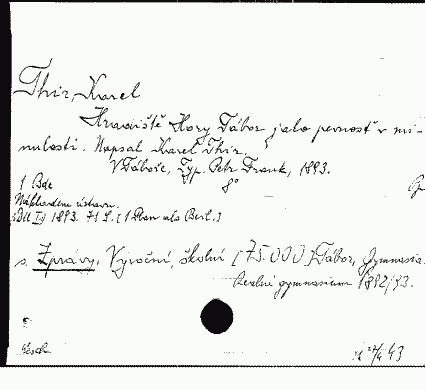 Thir, Karel
Hradiště Hory Tábor jako pevnost v mi-
nulosti. Napsal Karel Thir.
V Táboře, Typ. Petr Frank, 1893.
8°
1 Bde
Nákladem ústavu.
1893. 71 S. [1 Plan als Beil.]
s. Zprávy, Výroční, školní [75.000] Tábor, Gymnasia.
Realní gymnasium 1892/93.
43